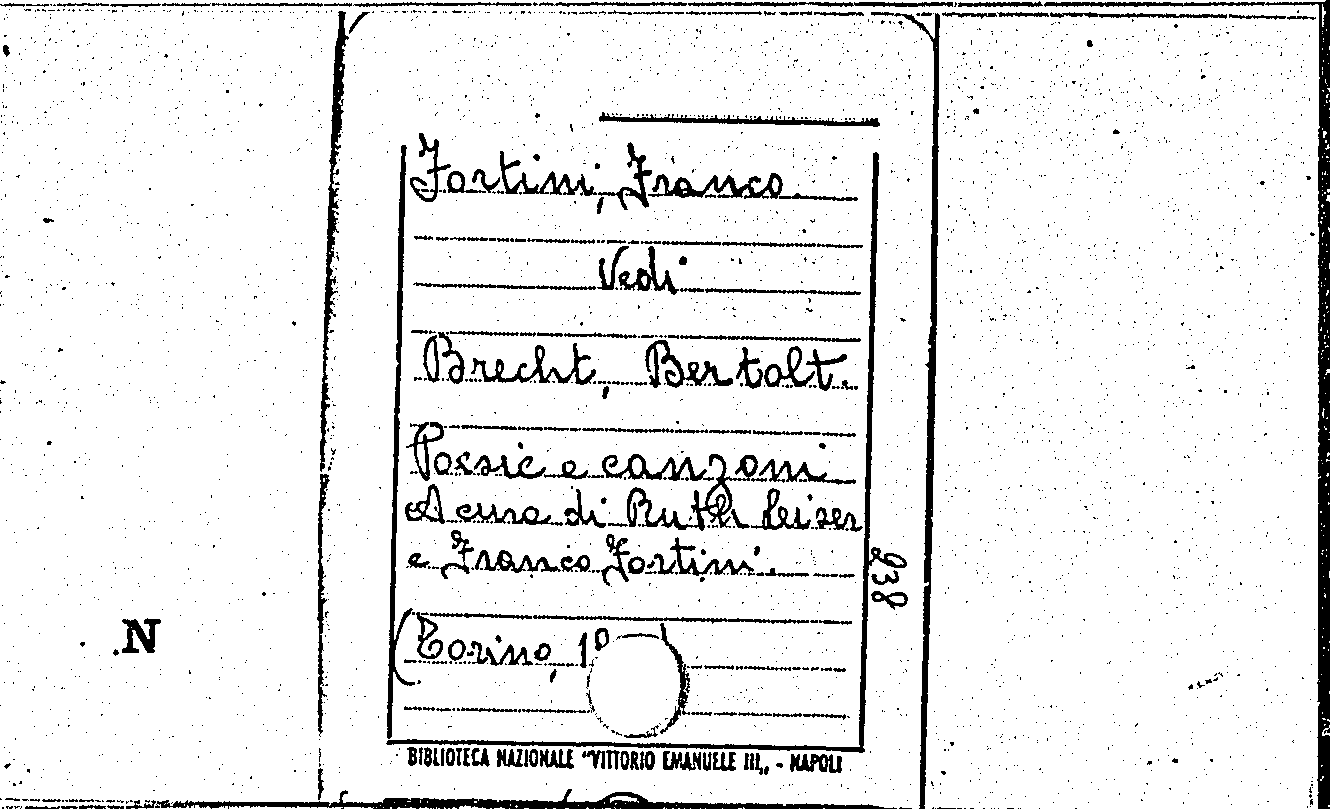 Fortini, Franco.
Vedi
Brecht, Bertolt.
Poesie e canzoni
A cura di Ruth Leiser
e Franco Fortini.
(Torino, 19
938
N
BIBLIOTECA NAZIONALE "VITTORIO EMANUELE III„ - NAPOLI